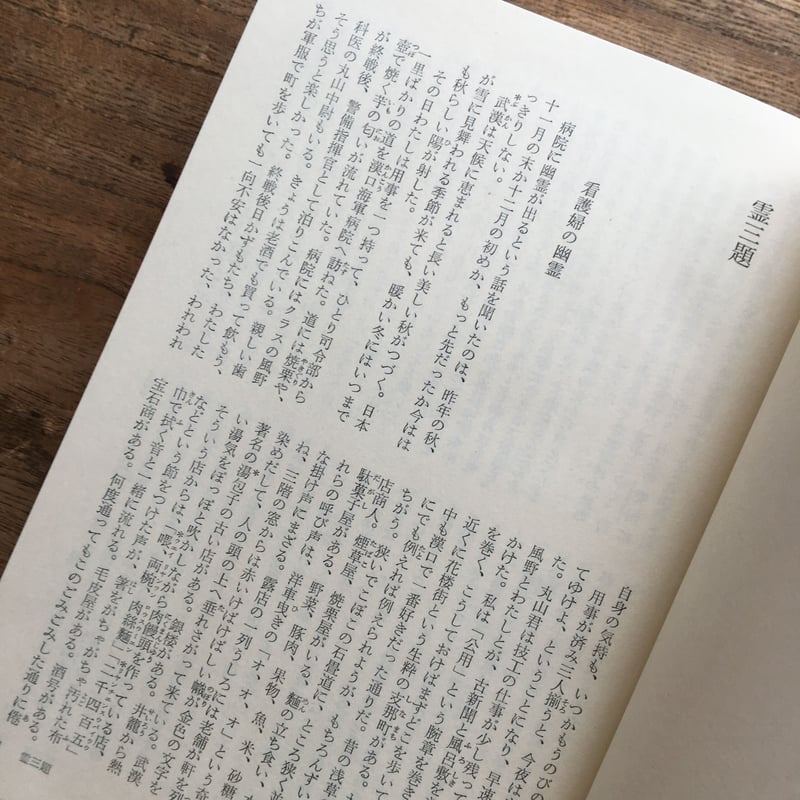 霊三題
看護婦の幽霊
病院に幽霊が出るという話を聞いたのは、昨年の秋、
十一月の末か十二月の初めか、もっと先だったか今はは
っきりしない。
武漢は天候に恵まれると長い美しい秋がつづく。日本
が雪に見舞われる季節が来ても、暖かい冬にはいつまで
も秋らしい陽が射した。
その日わたしは用事を一つ持って、ひとり司令部から
一里ばかりの道を漢口海軍病院へ訪ねた。道には焼栗や、
壺で焼く芋の匂いが流れていた。病院にはクラスの風野
が終戦後、警備指揮官として泊りこんでいる。親しい歯
科医の丸山中尉もいる。きょうは老酒でも買って飲もう、
そう思うと楽しかった。終戦後日かずもたち、わたした
ちが軍服で町を歩いても一向不安はなかった、われわれ
自身の気持も、いつかもうのびの
用事が済み三人揃うと、今夜は
てゆけよ、ということになり、早速
た。丸山君は技工の仕事が少し残って
風野とわたしとが、古新聞と風呂敷を
かけた。私は「公用」という腕章を巻き
を巻く、こうしておけばまずどこを歩いて
近くに花楼街という生粋の支那町がある。
中も漢口で一番好きだった通りだ。
にでも例えれば例えられようが、昔の浅草
ちがう。狭いでこぼこの石畳道に、ところ狭く並
店商人。煙草屋、焼栗屋がいる、麺の立ち食い、
駄菓子屋がある、野菜、豚肉、果物、魚、米、砂糖、
れらの呼び声は、洋車曳きの「オ、オ、オ」という奇
な掛け声にまざる。露店の一列うしろには老舗が軒を列
ね、三階の窓からは赤いけばけばしい幟が金色の文字を
染めだして、人の頭の上へ垂れさがって来ている。武漢
著名の湯包子の古い店がある。銀楼がある。井籠から熱
い湯気をぽっぽと吹かしながら肉饅頭を作っている店、
そういう店からは、「喂、両碗、肉絲麺」「二千四百五」
などという節をつけた声が、箸をがちゃがちゃ汚れた布
巾で拭く音と一緒に流れる。毛皮屋がある。酒号がある。
宝石商がある。何度通ってもこのごみごみした通りに倦
霊三題